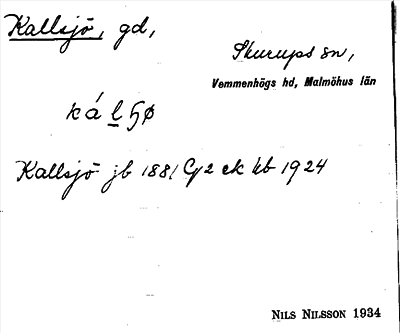 Kallsjö, gd,
Skurups sn,
Vemmenhögs hd, Malmöhus län
Kallsjö jb 1881 ek kb 1924
NILS NILSSON 1934